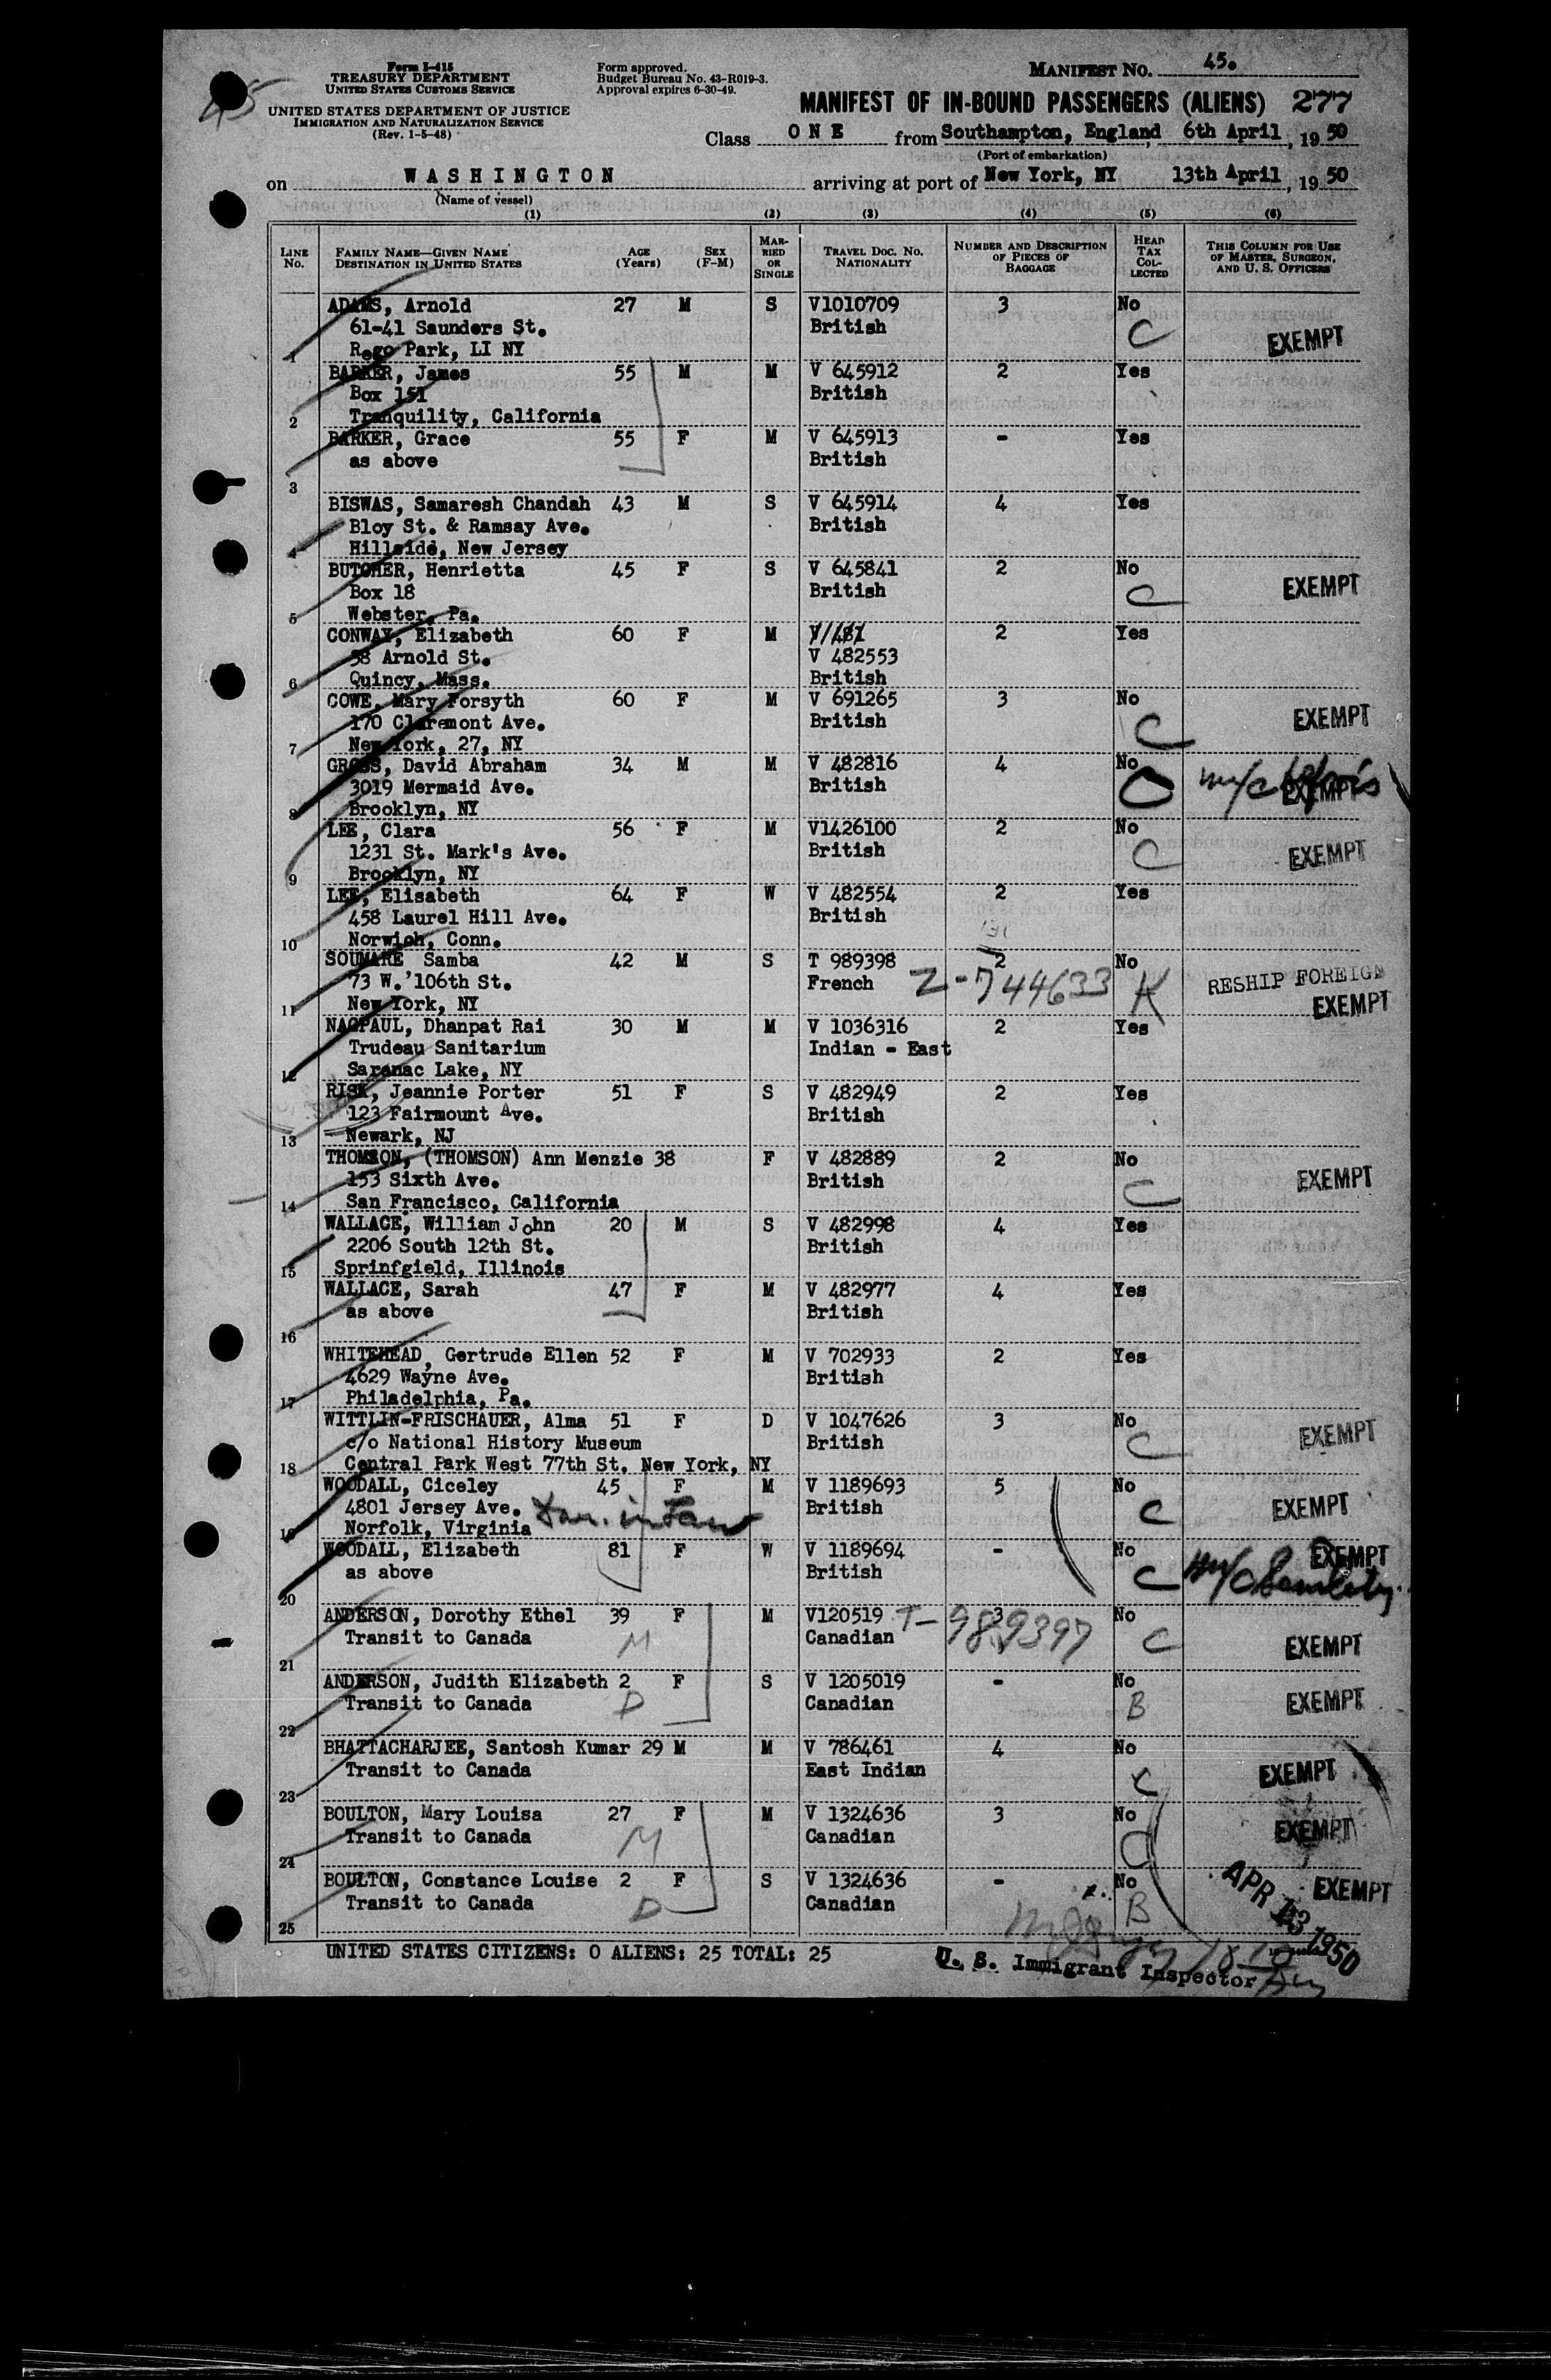 45
Form I-415
TREASURY DEPARTMENT
UNITED STATES CUSTOMS SERVICE
UNITED STATES DEPARTMENT OF JUSTICE
IMMIGRATION AND NATURALIZATION SERVICE
(Rev. 1-5-48)
Form approved.
Budget Bureau No. 43-R019-3.
Approval expires 6-30-49.
MANIFEST NO. 45.
MANIFEST OF IN-BOUND PASSENGERS (ALIENS) 277
Class ONE from Southampton, England, 6th April, 1950
(Port of embarkation)
on WASHINGTON arriving at port of New York, NY 13th April, 1950
(Name of vessel)
(1) (2) (3) (4) (5) (6)
LINE No. FAMILY NAME—GIVEN NAME DESTINATION IN UNITED STATES AGE (Years) SEX (F-M) MARRIED OR SINGLE TRAVEL DOC. NO. NATIONALITY NUMBER AND DESCRIPTION OF PIECES OF BAGGAGE HEAD TAX COLLECTED THIS COLUMN FOR USE OF MASTER, SURGEON, AND U. S. OFFICERS
ADAMS, Arnold 27 M S V1010709 3 No
61-41 Saunders St. British C EXEMPT
1 Rego Park, LI NY
BARKER, James 55 M M V 645912 2 Yes
Box 151 British
2 Tranquility, California
BARKER, Grace 55 F M V 645913 - Yes
as above British
3
BISWAS, Samaresh Chandah 43 M S V 645914 4 Yes
Bloy St. & Ramsay Ave. British
4 Hillside, New Jersey
BUTCHER, Henrietta 45 F S V 645841 2 No
Box 18 British C EXEMPT
5 Webster, Pa.
CONWAY, Elizabeth 60 F M V/481 2 Yes
58 Arnold St. V 482553
6 Quincy, Mass. British
COWE, Mary Forsyth 60 F M V 691265 3 No
170 Claremont Ave. British C EXEMPT
7 New York, 27, NY
GROSS, David Abraham 34 M M V 482816 4 No
3019 Mermaid Ave. British C EXEMPT
8 Brooklyn, NY
LEE, Clara 56 F M V1426100 2 No
1231 St. Mark's Ave. British C EXEMPT
9 Brooklyn, NY
LEE, Elisabeth 64 F W V 482554 2 Yes
458 Laurel Hill Ave. British
10 Norwich, Conn.
SOUMARE Samba 42 M S T 989398 2 No
73 W. 106th St. French Z-744633 K RESHIP FOREIGN
11 New York, NY EXEMPT
NAGPAUL, Dhanpat Rai 30 M M V 1036316 2 Yes
Trudeau Sanitarium Indian - East
12 Saranac Lake, NY
RISK, Jeannie Porter 51 F S V 482949 2 Yes
123 Fairmount Ave. British
13 Newark, NJ
THOMSON, (THOMSON) Ann Menzie 38 F V 482889 2 No
153 Sixth Ave. British C EXEMPT
14 San Francisco, California
WALLACE, William John 20 M S V 482998 4 Yes
2206 South 12th St. British
15 Sprinfgield, Illinois
WALLACE, Sarah 47 F M V 482977 4 Yes
as above British
16
WHITEHEAD, Gertrude Ellen 52 F M V 702933 2 Yes
4629 Wayne Ave. British
17 Philadelphia, Pa.
WITTLIN-FRISCHAUER, Alma 51 F D V 1047626 3 No
c/o National History Museum British C EXEMPT
18 Central Park West 77th St. New York, NY
WOODALL, Ciceley 45 F M V 1189693 5 No
4801 Jersey Ave. Dau. in law British C EXEMPT
19 Norfolk, Virginia
WOODALL, Elizabeth 81 F W V 1189694 - No EXEMPT
as above British C
20
ANDERSON, Dorothy Ethel 39 F M V120519 T-989397 3 No
Transit to Canada M Canadian C EXEMPT
21
ANDERSON, Judith Elizabeth 2 F S V 1205019 - No
Transit to Canada D Canadian B EXEMPT
22
BHATTACHARJEE, Santosh Kumar 29 M M V 786461 4 No
Transit to Canada East Indian C EXEMPT
23
BOULTON, Mary Louisa 27 F M V 1324636 3 No
Transit to Canada M Canadian C EXEMPT
24
BOULTON, Constance Louise 2 F S V 1324636 - No EXEMPT
Transit to Canada D Canadian B
25
APR 13 1950
UNITED STATES CITIZENS: 0 ALIENS: 25 TOTAL: 25
U. S. Immigrant Inspector